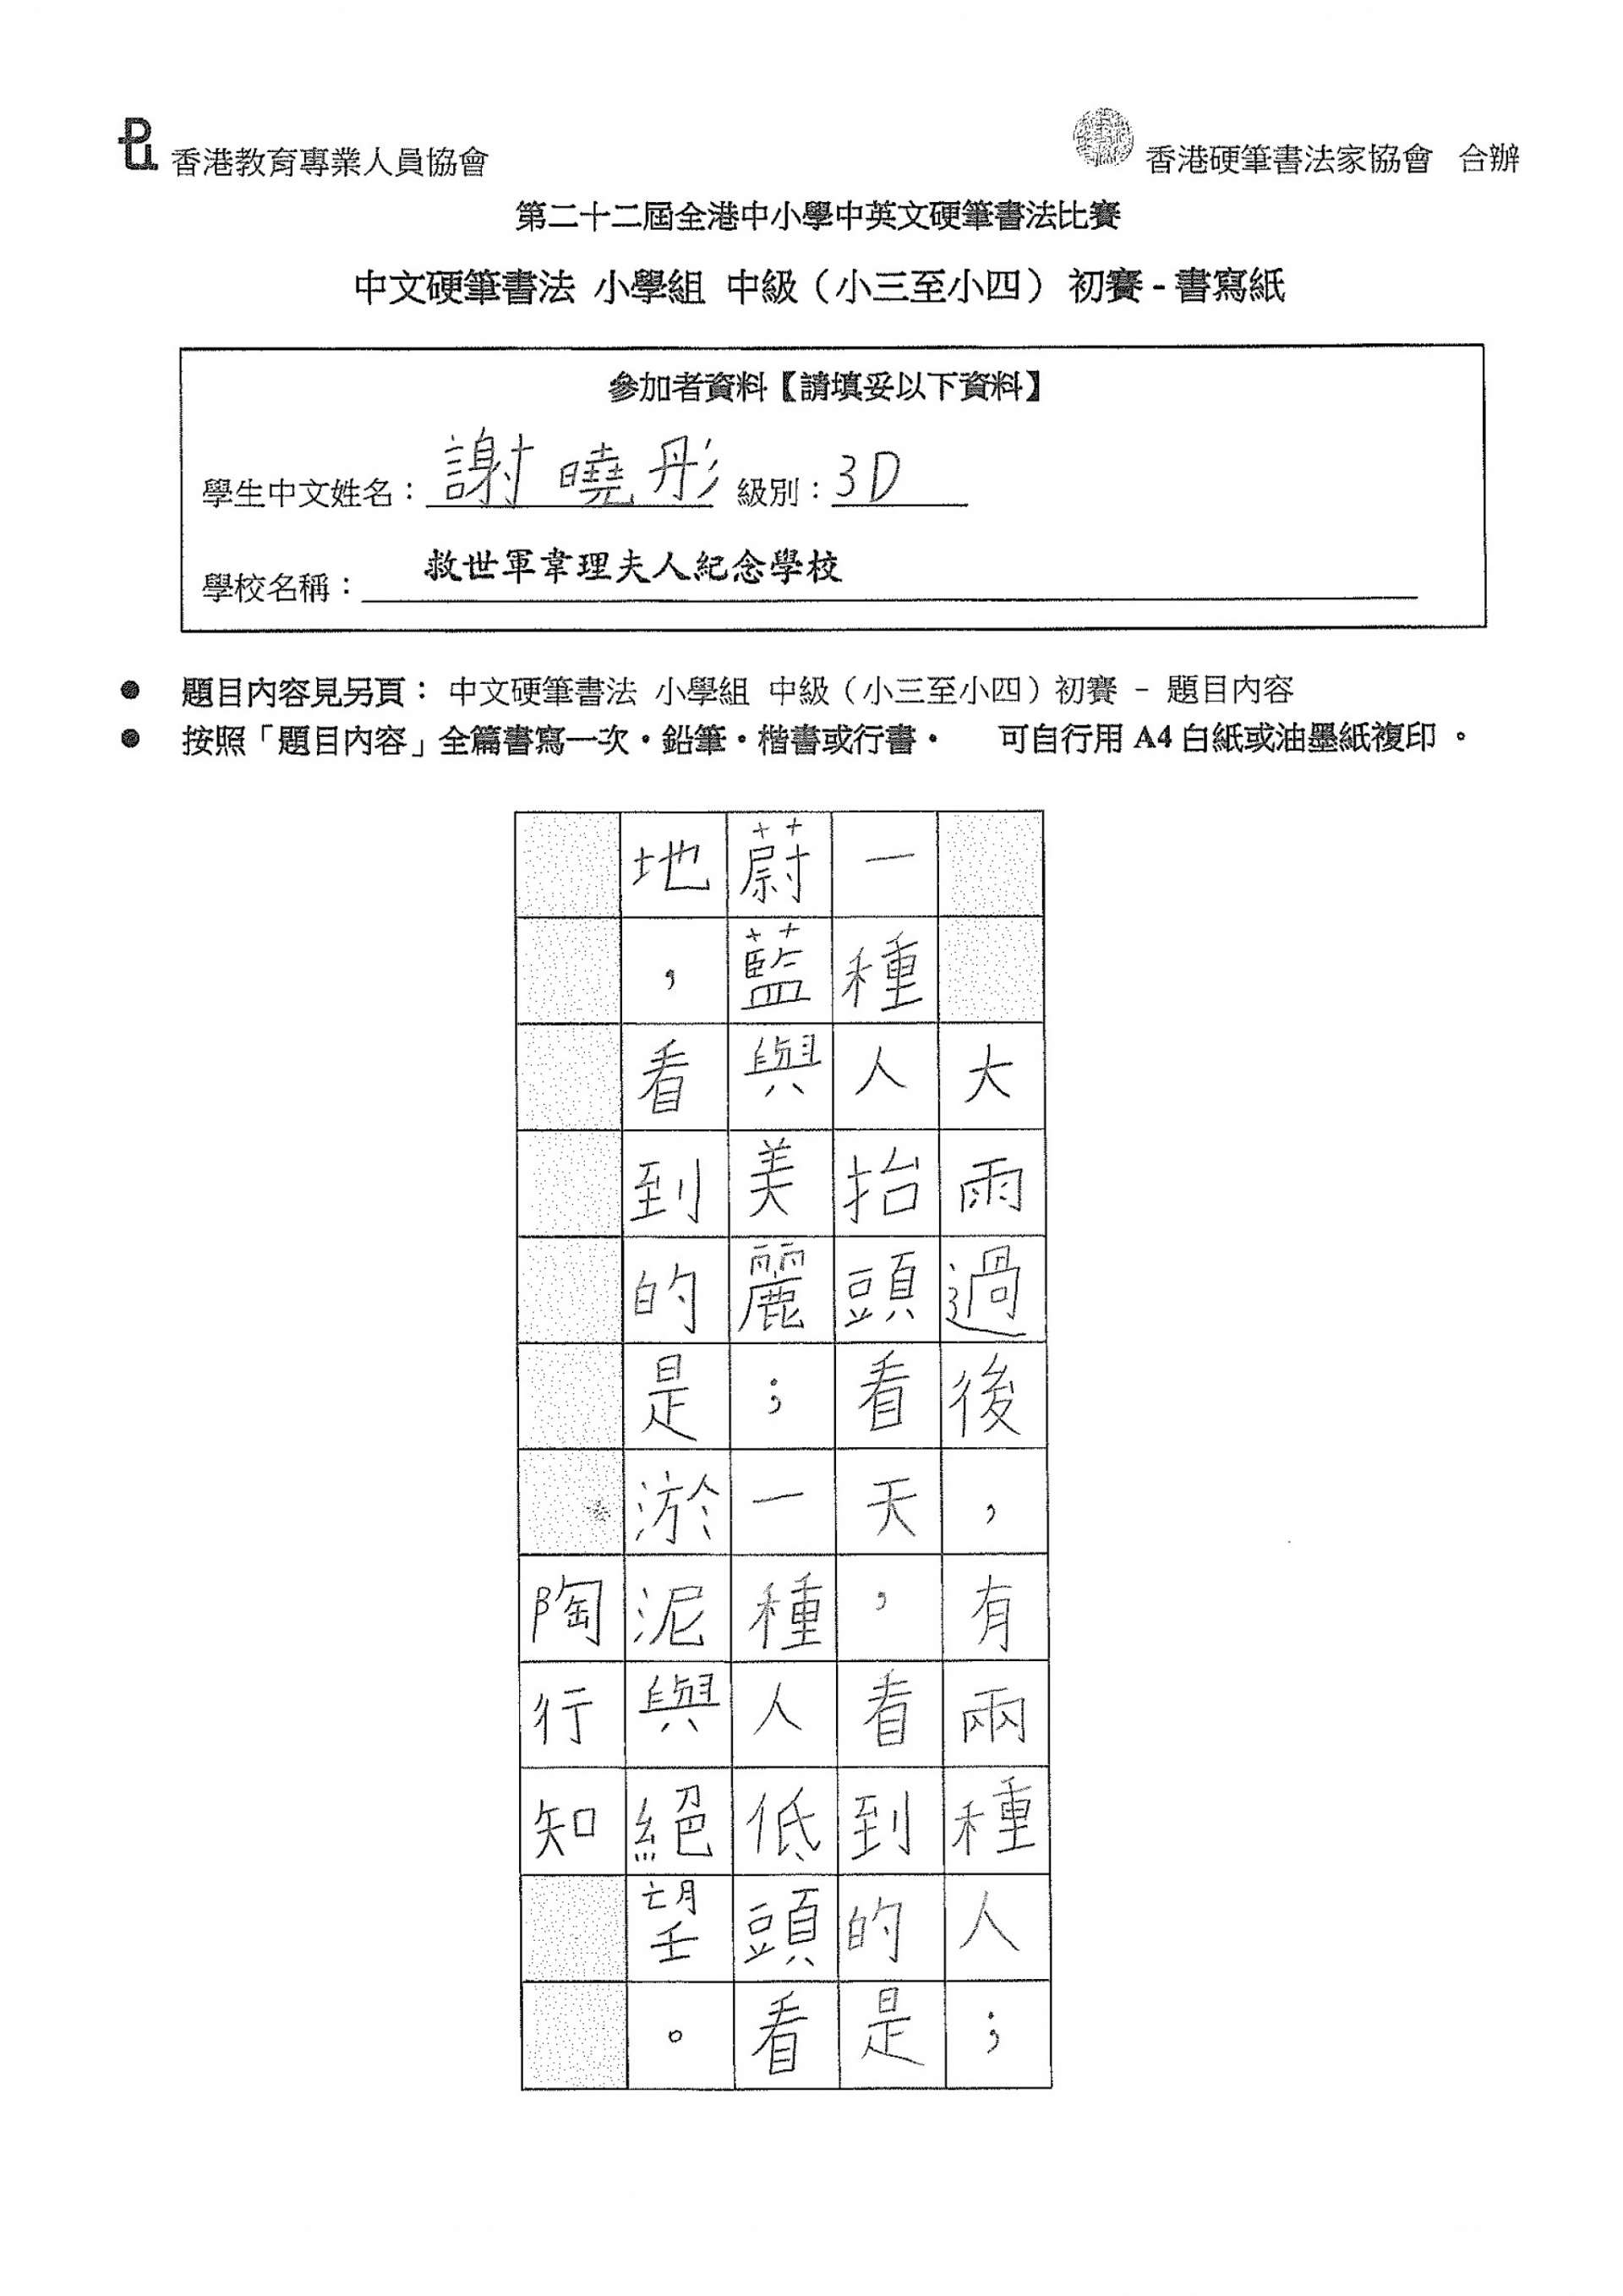 香港教育專業人員協會
香港硬筆書法家協會 合辦
第二十二屆全港中小學中英文硬筆書法比賽
中文硬筆書法 小學組 中級（小三至小四） 初賽 - 書寫紙
參加者資料【請填妥以下資料】
學生中文姓名：謝曉彤 級別：3D
學校名稱：救世軍韋理夫人紀念學校
● 題目內容見另頁： 中文硬筆書法 小學組 中級（小三至小四）初賽 － 題目內容
● 按照「題目內容」全篇書寫一次。鉛筆。楷書或行書。 可自行用 A4 白紙或油墨紙複印 。
大雨過後，有兩種人；
一種人抬頭看天，看到的是
蔚藍與美麗；一種人低頭看
地，看到的是淤泥與絕望。
陶行知